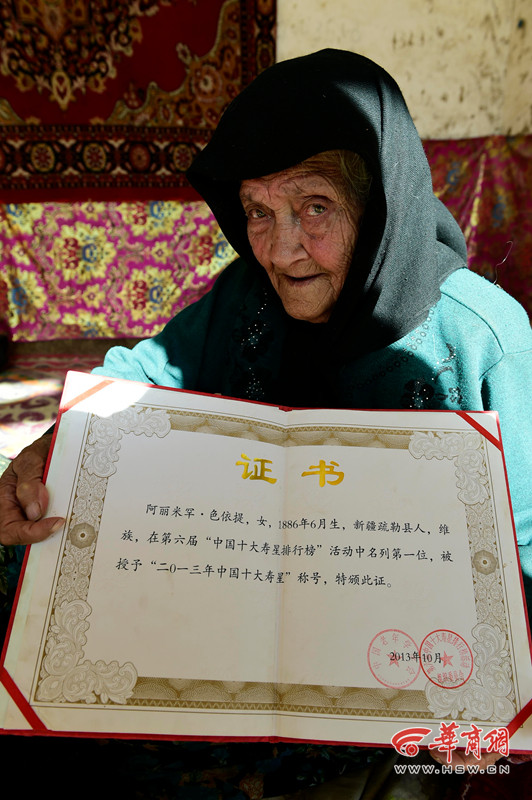 证书
阿丽米罕·色依提，女，1886年6月生，新疆疏勒县人，维
族，在第六届“中国十大寿星排行榜”活动中名列第一位，被
授予“二0一三年中国十大寿星”称号，特颁此证。
2013年10月
華商網
WWW.HSW.CN